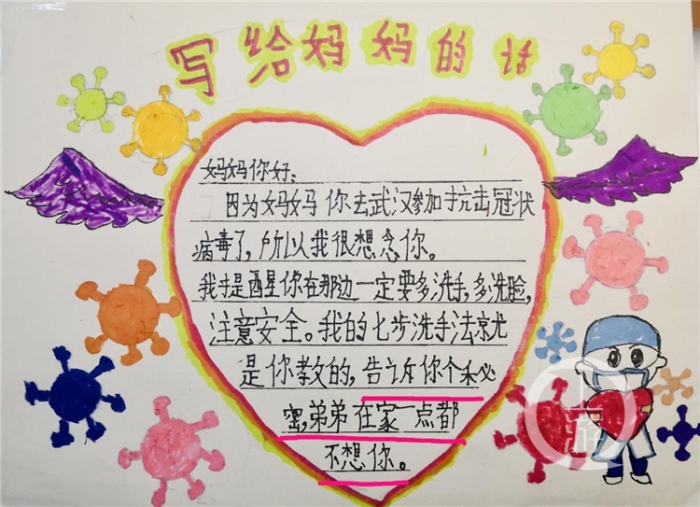 写给妈妈的话
妈妈你好:
因为妈妈你去武汉参加抗击冠状
病毒了,所以我很想念你。
我提酉星你在那边一定要多洗手,多洗脸,
注意安全。我的七步洗手法就
是你教的,告诉你个秘
密,弟弟在家一点都
不想你。
上游